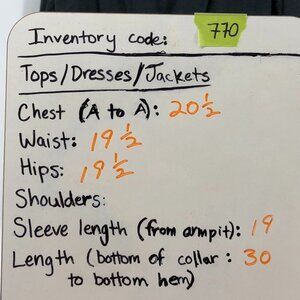 Inventory code: 770
Tops/Dresses/Jackets
Chest (A to A): 20 1/2
Waist: 19 1/2
Hips: 19 1/2
Shoulders:
Sleeve length (from armpit): 19
Length (bottom of collar : 30
to bottom hem)